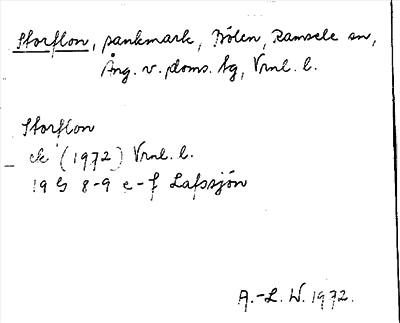 Storflon, sankmark, Bölen, Ramsele sn,
Ång. v. doms. tg, Vrnl. l.
Storflon
ek (1972) Vrnl. l.
19 G 8-9 e-f Lafssjön
A.-L. W. 1972.